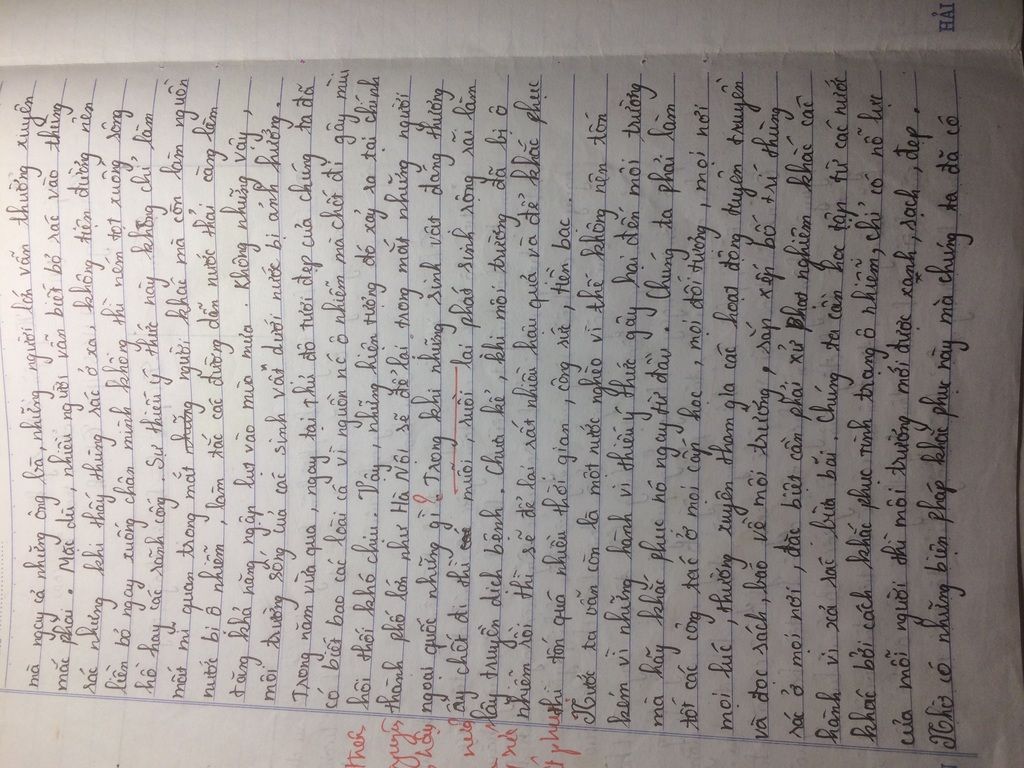 mà ngay cả những ông bà, những người lớn vẫn thường xuyên
mắc phải. Mặc dù, nhiều người vẫn biết bỏ rác vào thùng
rác nhưng khi thấy thùng rác ở xa, không tiện đường nên
liền bỏ ngay xuống chân mình không thì ném tọt xuống sông
hồ hay các rãnh cống. Sự thiếu ý thức này không chỉ làm
mất mĩ quan trong mắt những người khác mà còn làm nguồn
nước bị ô nhiễm, làm tắc các đường dẫn nước thải càng làm
tăng khả năng ngập lụt vào mùa mưa. Không những vậy,
môi trường sống của các sinh vật dưới nước bị ảnh hưởng.
Trong năm vừa qua, ngay tại thủ đô tươi đẹp của chúng ta đã
có biết bao các loài cá vì nguồn nước ô nhiễm mà chết đi gây mùi
hôi thối khó chịu. Vậy, những hiện tượng đó xảy ra tại chính
thành phố lớn như Hà Nội sẽ để lại trong mắt những người
ngoại quốc những gì? Trong khi những sinh vật đáng thương
ấy chết đi thì muỗi, ruồi lại phát sinh rộng rãi làm
lây truyền dịch bệnh. Chưa kể, khi môi trường đã bị ô
nhiễm rồi thì sẽ để lại rất nhiều hậu quả và để khắc phục
thì tốn quá nhiều thời gian, công sức, tiền bạc.
Nước ta vẫn còn là một nước nghèo vì thế không nên tốn
kém vì những hành vi thiếu ý thức gây hại đến môi trường
mà hãy khắc phục nó ngay từ đầu. Chúng ta phải làm
tốt các công tác ở mọi cấp học, mọi đối tượng, mọi nơi
mọi lúc, thường xuyên tham gia các hoạt động tuyên truyền
và đọc sách, bảo vệ môi trường, sắp xếp bố trí thùng
rác ở mọi nơi, đặc biệt cần phải xử phạt nghiêm khắc các
hành vi xả rác bừa bãi. Chúng ta cần học tập từ các nước
khác bởi cách khắc phục tình trạng ô nhiễm, chỉ có nỗ lực
của mỗi người thì môi trường mới được xanh, sạch, đẹp.
Nhờ có những biện pháp khắc phục này mà chúng ta đã có
HẢI